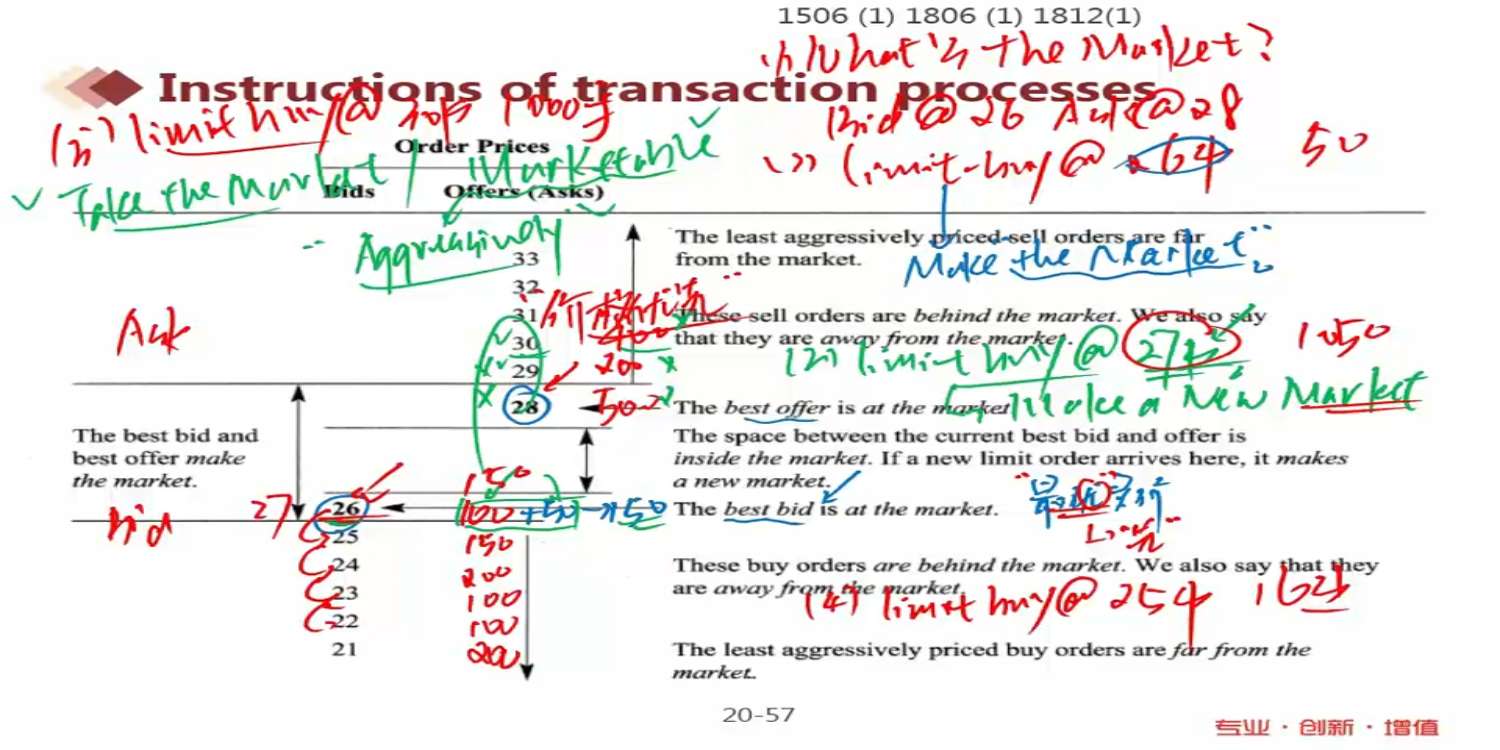 1506 (1) 1806 (1) 1812(1)
(1) What's the Market?
Instructions of transaction processes
Bid @ 26 Ask @ 28
(3) limit buy @ 30 1000手
Order Prices
Marketable
Take the Market
Bids Offers (Asks)
limit buy @ 50
Aggressively
33
The least aggressively priced sell orders are far
from the market.
Make the Market
32
31
These sell orders are behind the market. We also say
that they are away from the market.
Ask
30 400
29 200
(2) limit buy @ 27 1050
28 50
The best offer is at the market
Make a New Market
The best bid and
best offer make
the market.
The space between the current best bid and offer is
inside the market. If a new limit order arrives here, it makes
a new market.
150
Bid 27 26
100 +50 → 150
The best bid is at the market.
25 150
24 200
These buy orders are behind the market. We also say that they
are away from the market.
23 100
(4) limit buy @ 25
22 100
21 200
The least aggressively priced buy orders are far from the
market.
20-57
专业 · 创新 · 增值